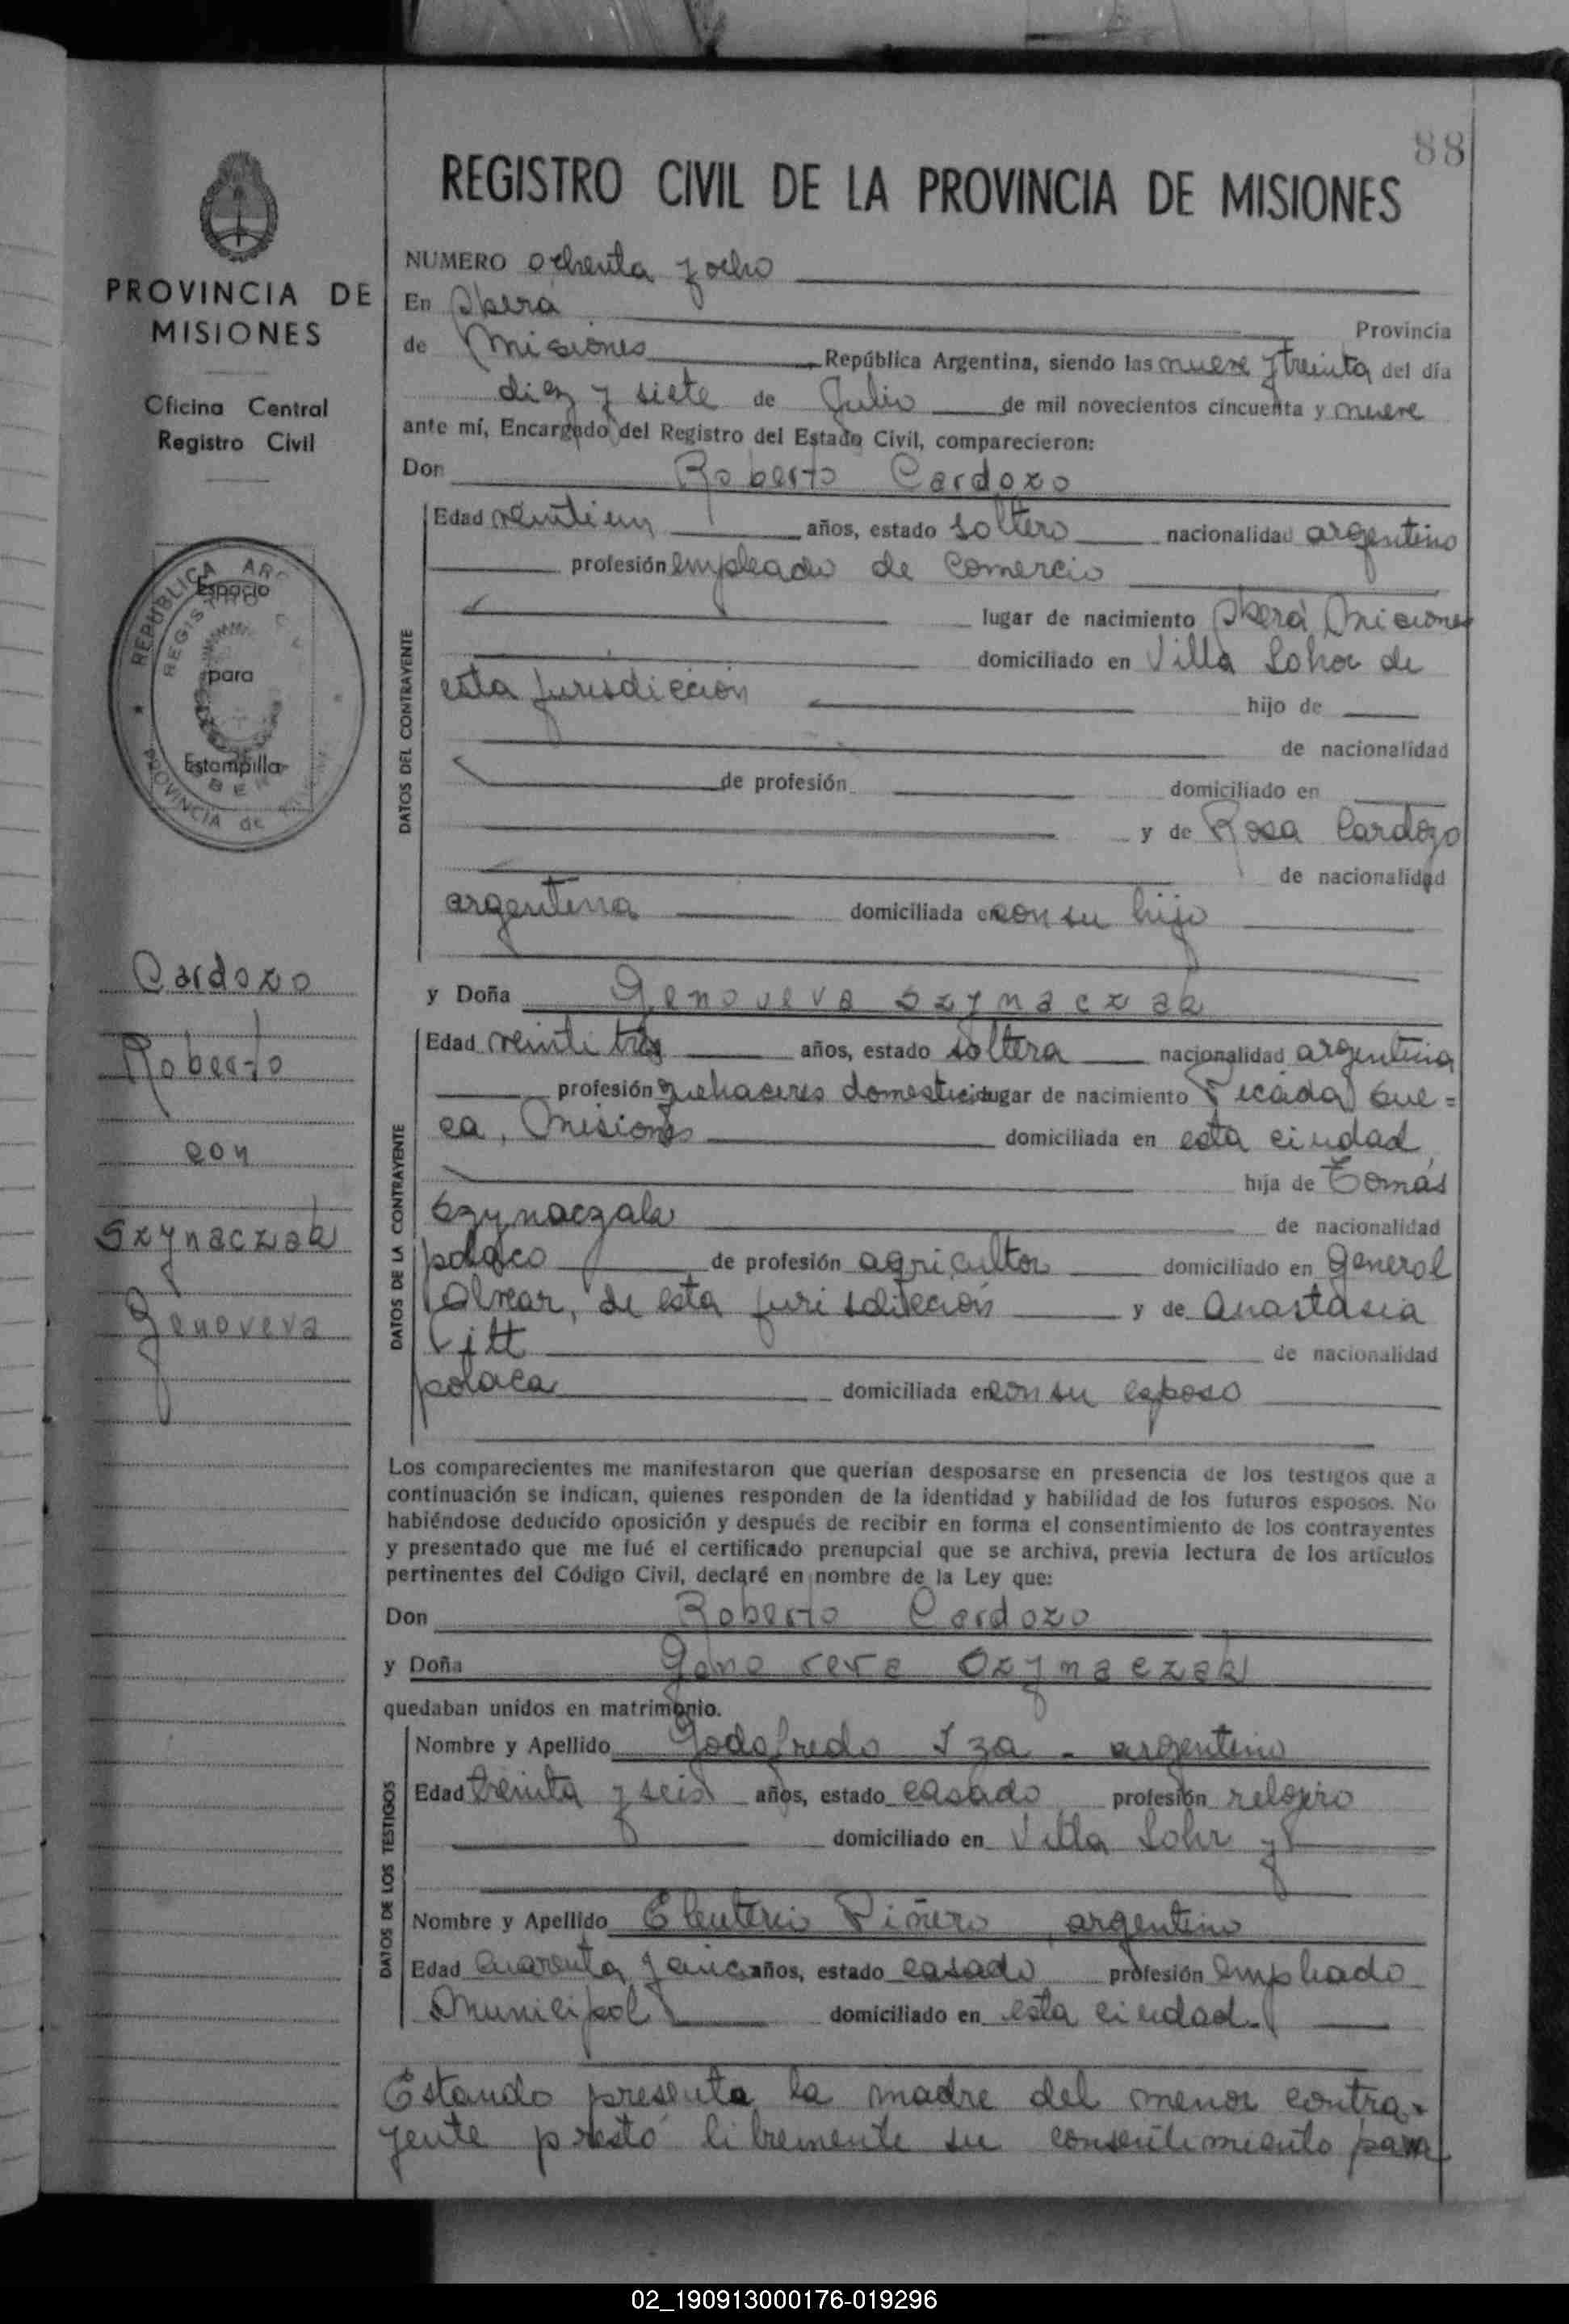 88
REGISTRO CIVIL DE LA PROVINCIA DE MISIONES
PROVINCIA DE
MISIONES
Oficina Central
Registro Civil
REPUBLICA ARG
REGISTRO CIV
Espacio
para
Estampilla
OBERA
PROVINCIA de
Cardozo
Roberto
con
Szynaczak
Genoveva
NUMERO ochenta y ocho
En Oberá Provincia
de Misiones República Argentina, siendo las nueve y treinta del día
diez y siete de Julio de mil novecientos cincuenta y nueve
ante mí, Encargado del Registro del Estado Civil, comparecieron:
Don Roberto Cardozo
DATOS DEL CONTRAYENTE
Edad veintiun años, estado soltero nacionalidad argentino
profesión empleado de comercio
lugar de nacimiento Oberá Misiones
domiciliado en Villa Lohor de
esta jurisdicción hijo de
de nacionalidad
de profesión domiciliado en
y de Rosa Cardozo
de nacionalidad
argentina domiciliada en con su hijo
y Doña Genoveva Szynaczak
DATOS DE LA CONTRAYENTE
Edad veinti tres años, estado soltera nacionalidad argentina
profesión quehaceres domesticos lugar de nacimiento Picada Sue=
ca, Misiones domiciliada en esta ciudad,
hija de Tomás
Szynaczak de nacionalidad
polaco de profesión agricultor domiciliado en General
Alvear, de esta jurisdiccion y de Anastasia
Titt de nacionalidad
polaca domiciliada en con su esposo
Los comparecientes me manifestaron que querían desposarse en presencia de los testigos que a
continuación se indican, quienes responden de la identidad y habilidad de los futuros esposos. No
habiéndose deducido oposición y después de recibir en forma el consentimiento de los contrayentes
y presentado que me fué el certificado prenupcial que se archiva, previa lectura de los artículos
pertinentes del Código Civil, declaré en nombre de la Ley que:
Don Roberto Cardozo
y Doña Genoveva Szynaczak
quedaban unidos en matrimonio.
DATOS DE LOS TESTIGOS
Nombre y Apellido Godofredo Iza - argentino
Edad treinta y seis años, estado casado profesión relojero
domiciliado en Villa Lohr y
Nombre y Apellido Eleuterio Piñero, argentino
Edad cuarenta y cinco años, estado casado profesión empleado
Municipal domiciliado en esta ciudad.
Estando presente la madre del menor contra-
yente prestó libremente su consentimiento para
02_190913000176-019296